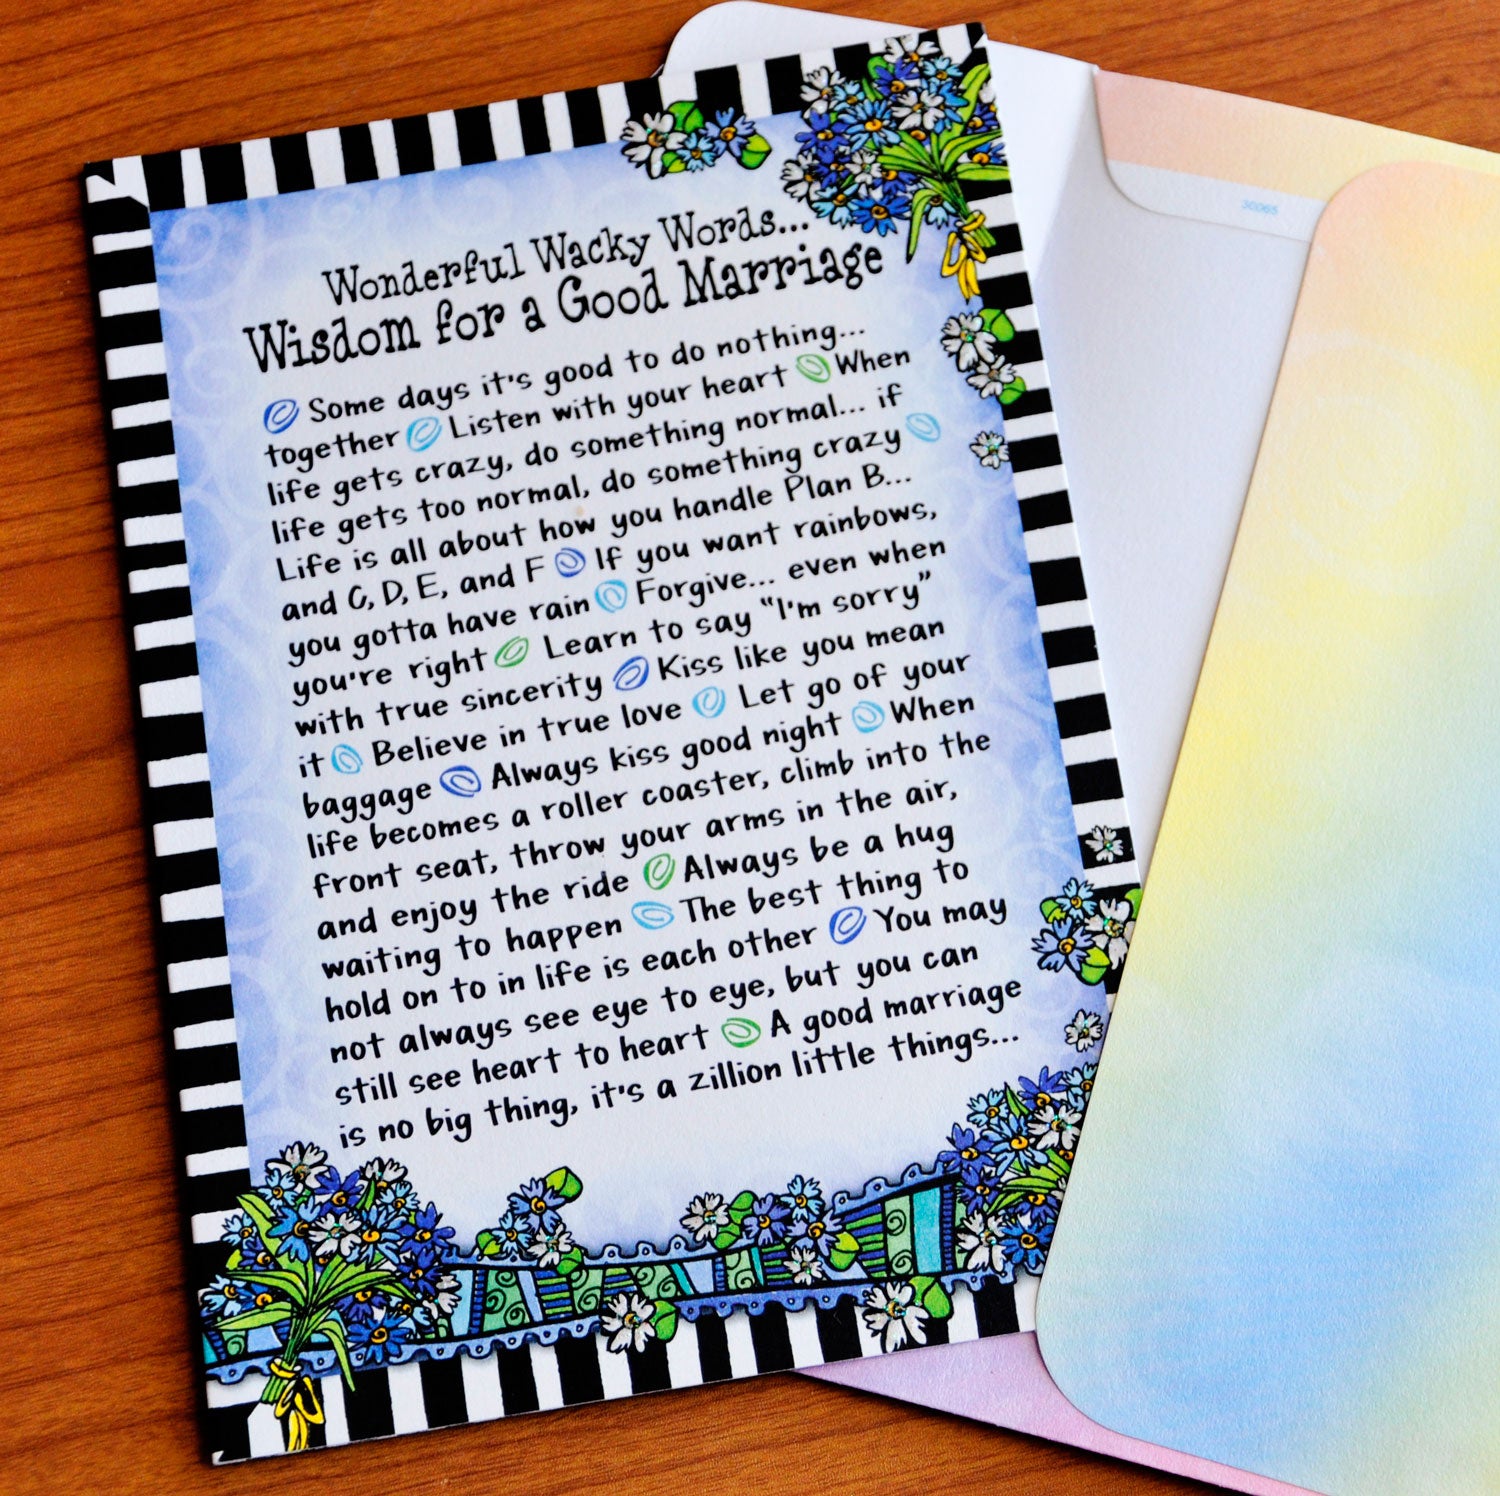 Wonderful Wacky Words...
Wisdom for a Good Marriage
Some days it's good to do nothing...
together Listen with your heart When
life gets crazy, do something normal... if
life gets too normal, do something crazy
Life is all about how you handle Plan B...
and C, D, E, and F If you want rainbows,
you gotta have rain Forgive... even when
you're right Learn to say "I'm sorry"
with true sincerity Kiss like you mean
it Believe in true love Let go of your
baggage Always kiss good night When
life becomes a roller coaster, climb into the
front seat, throw your arms in the air,
and enjoy the ride Always be a hug
waiting to happen The best thing to
hold on to in life is each other You may
not always see eye to eye, but you can
still see heart to heart A good marriage
is no big thing, it's a zillion little things...
30065